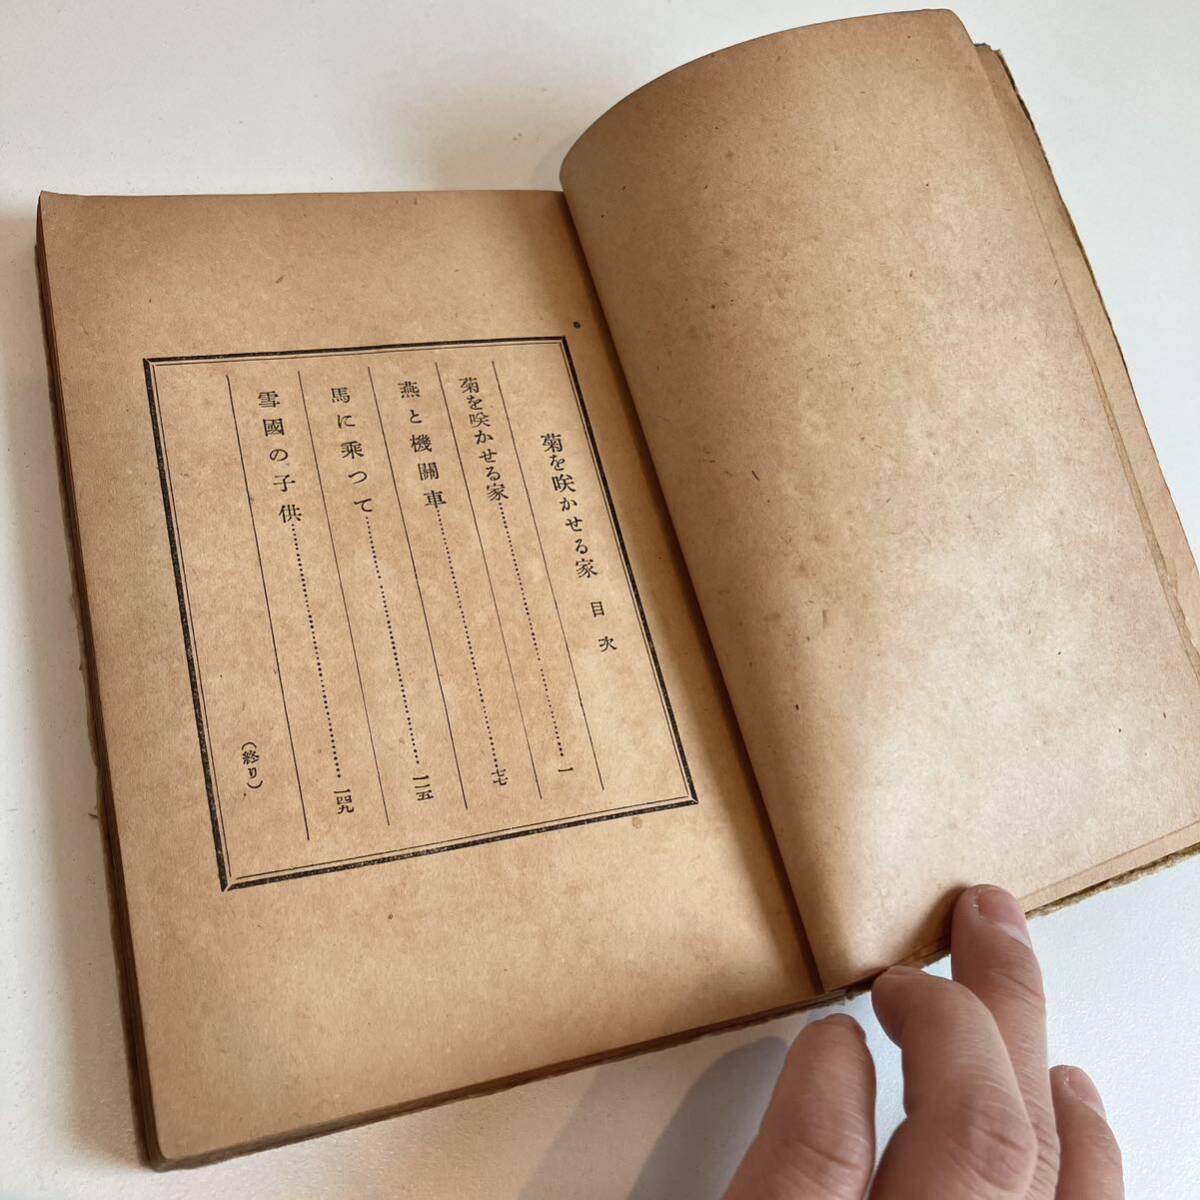 菊を咲かせる家 目次
菊を咲かせる家……………………一
燕と機關車……………………七七
馬に乘つて……………………一一五
雪國の子供……………………一四九
（終り）